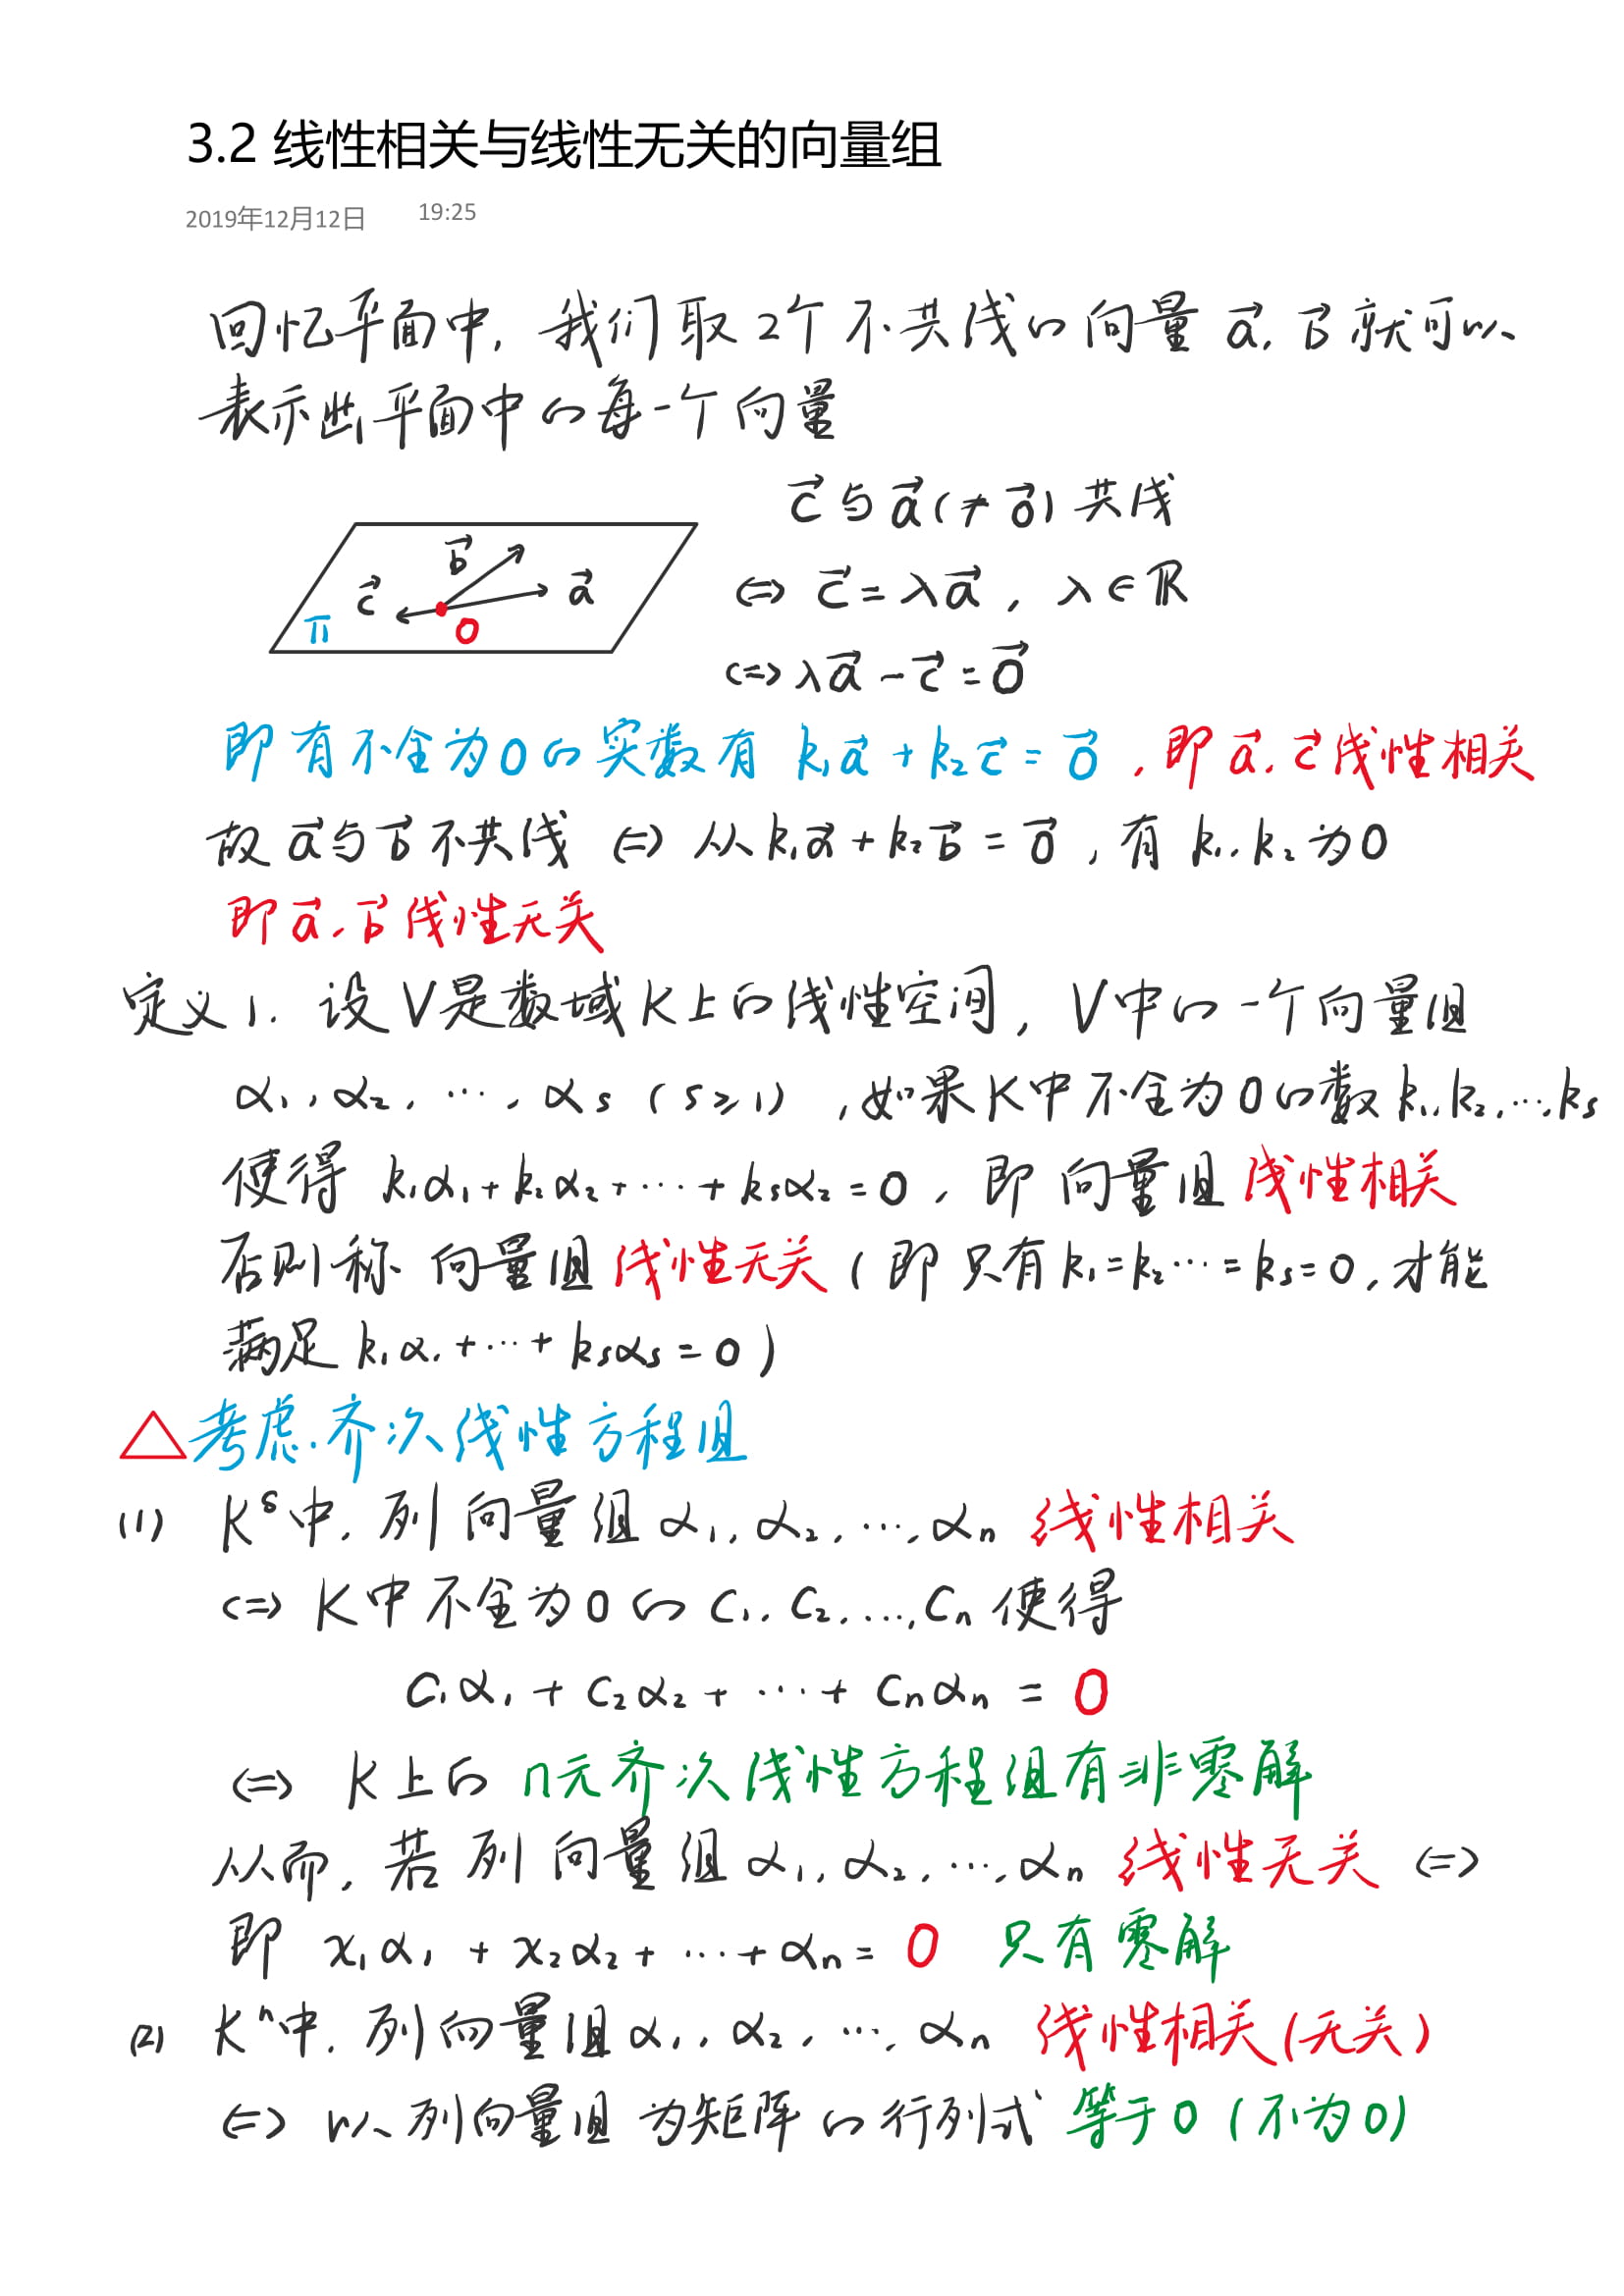 3.2 线性相关与线性无关的向量组
2019年12月12日 19:25
回忆平面中, 我们取2个不共线的向量 a⃗, b⃗ 就可以
表示出平面中的每一个向量
c⃗与a⃗(≠0⃗)共线
⇔ c⃗=λa⃗, λ∈ℝ
⇔ λa⃗-c⃗=0⃗
b⃗
c⃗
a⃗
π
O
即有不全为0的实数有 k₁a⃗+k₂c⃗=0⃗, 即a⃗,c⃗线性相关
故a⃗与b⃗不共线 ⇔ 从k₁a⃗+k₂b⃗=0⃗, 有k₁,k₂为0
即a⃗,b⃗线性无关
定义1. 设V是数域K上的线性空间, V中的一个向量组
α₁,α₂,…,αs (s≥1), 如果K中不全为0的数k₁,k₂,…,ks
使得 k₁α₁+k₂α₂+…+ksα₂=0, 即向量组线性相关
否则称向量组线性无关(即只有k₁=k₂…=ks=0,才能
满足k₁α₁+…+ksαs=0)
△考虑.齐次线性方程组
(1) Kˢ中, 列向量组α₁,α₂,…,αn 线性相关
⇔ K中不全为0的C₁,C₂,…,Cn使得
C₁α₁+C₂α₂+…+Cnαn=0
⇔ K上的n元齐次线性方程组有非零解
从而, 若列向量组α₁,α₂,…,αn 线性无关 ⇔
即 x₁α₁+x₂α₂+…+αn=0 只有零解
(2) Kⁿ中, 列向量组α₁,α₂,…,αn 线性相关(无关)
⇔ 以列向量组为矩阵的行列式等于0(不为0)